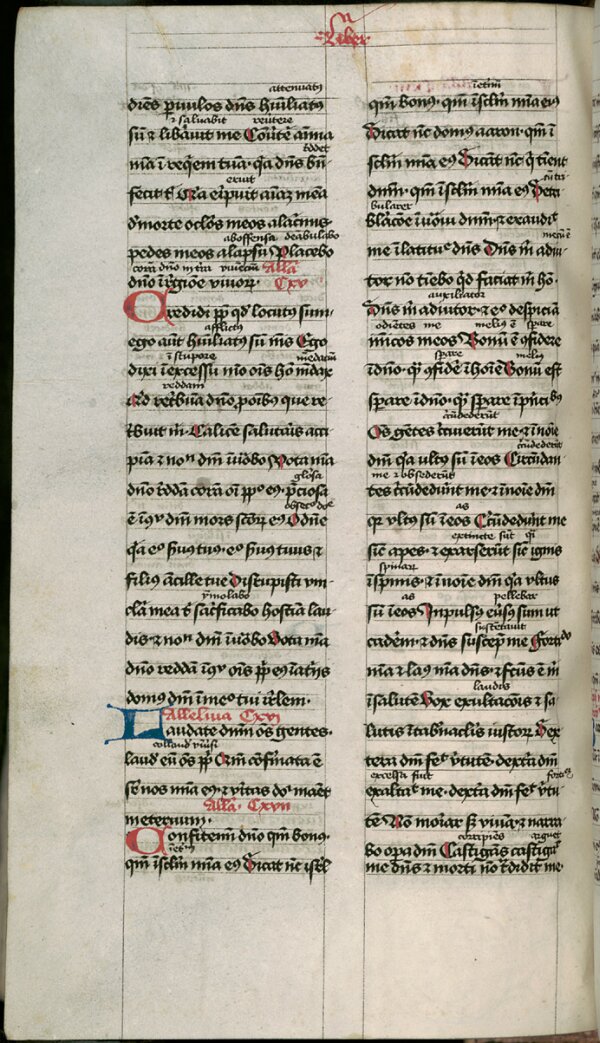 Liber
attenuatus
diens parvulos dns humiliatus
et salvabit revertere
sum et liberavit me Convertere anima
reddet
mea in requiem tuam quia dns bn
eruit
fecit tibi Quia eripuit animam meam
de morte oculos meos a lacrimis
ab offensa deambulabo
pedes meos a lapsu Placebo
coram dno in terra viventium Alla
dno in regione vivorum Cxv
Credidi propter quod locutus sum
afflictus
ego autem humiliatus sum nimis Ego
in stupore mendacium
dixi in excessu meo omnis homo mendax
reddam
Quid retribuam dno pro omnibus que re
tribuit mihi Calicem salutaris acci
piam et nomen dni invocabo Vota mea
gloriosa
dno reddam coram omni populo eius preciosa
in conspectu dni mors sanctorum eius O dne
quia ego servus tuus ego servus tuus et
filius ancille tue Dirupisti vin
immolabo
cula mea tibi sacrificabo hostiam lau
dis et nomen dni invocabo Vota mea
dno reddam in conspectu omnis populi eius in atriis
domus dni in medio tui irlem
Alleluia Cxvi
Laudate dnm omnes gentes
collaudate universi
laudate eum omnes populi Quoniam confirmata est
super nos mia eius et veritas dni manet
Alla Cxvii
in eternum
Confitemini dno quoniam bonus
in eternum
quoniam in sclm mia eius Dicat nunc isrl
in eternum
quoniam bonus quoniam in sclm mia eius
Dicat nunc domus aaron quoniam in
sclm mia eius Dicant nunc qui timent
dnm quoniam in sclm mia eius De tri
bulatione invocavi dnm et exaudivit
me in latitudine dns Dns mihi adiu
tor non timebo quid faciat mihi homo
auxiliator
Dns mihi adiutor et ego despiciam
odientes me melius est sperare
inimicos meos Bonum est confidere
sperare melius
in dno quam confidere in homine Bonum est
sperare in dno quam sperare in principibus
circumdederunt
Omnes gentes circuierunt me et in nomine
circumdederunt
dni quia ultus sum in eos Circumdan
me et obsederunt
tes circumdederunt me et in nomine dni
as
quia ultus sum in eos Circumdederunt me
extincte sunt quasi
sicut apes et exarserunt sicut ignis
spinarum
in spinis et in nomine dni quia ultus
as pellebar
sum in eos Inpulsus eversus sum ut
sustentavit
caderem et dns suscepit me Fortitudo
mea et laus mea dns et factus est mihi
laudis
in salutem Vox exultacionis et sa
lutis in tabernaculis iustorum Dex
tera dni fecit virtutem dextera dni
excelsa fuit
exaltavit me dextera dni fecit virtu
tem Non moriar sed vivam et narra
corripiens arguit
bo opera dni Castigans castigavit
me dns et morti non tradidit me